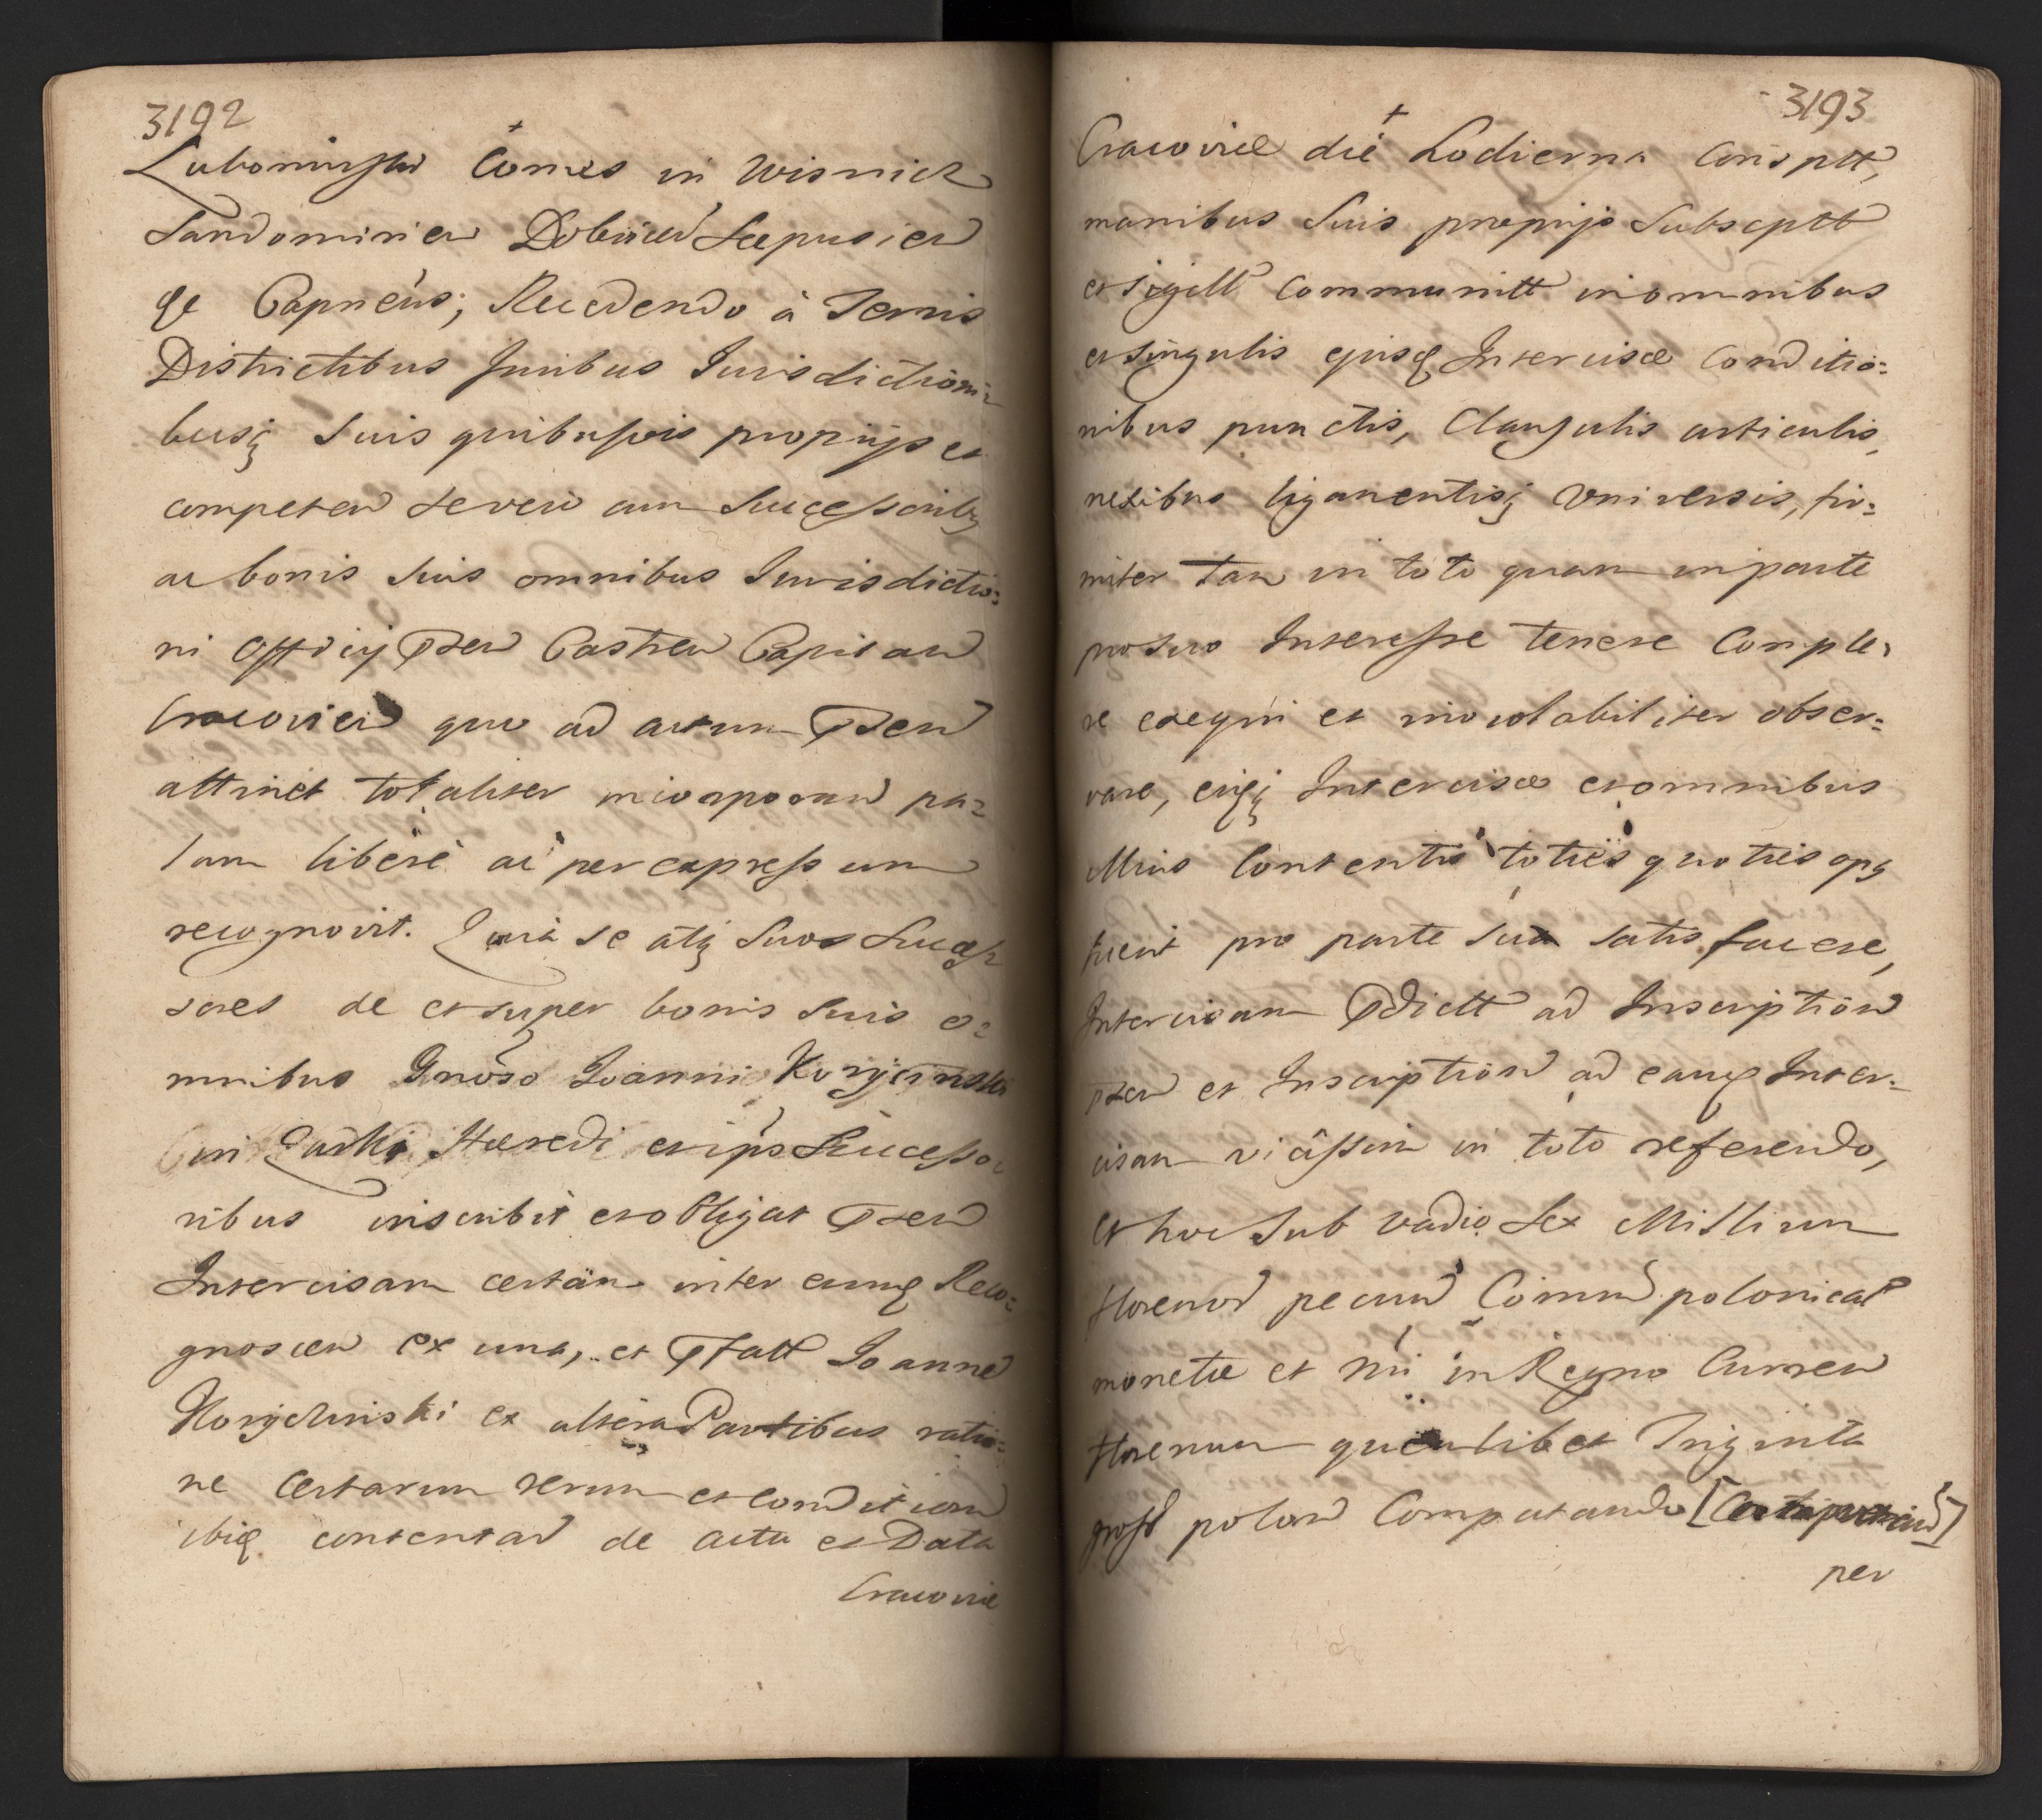 3192
Lubomirski Comes in Wisnicz
Sandomirien Dobcicen Scepusien
qe Capneus; Recedendo à Terris
Districtibus Juribus Jurisdictioni=
busq suis quibusvis proprijs et
competen se vero cum Successorib9
ac bonis suis omnibus Jurisdictio:
ni Officij Pnten Castren Capitan
Cracovien quo ad actum Pnten
attinet totaliter incorporan pa=
lam liberè ac per expressum
recognovit. Quia se atq suos Succes=
sores de et super bonis suis o=
mnibus Gnoso Joanni Korycinski
in Hæredi et ips Successo=
ribus inscribit et obligat Pnten
Intercisam certam inter eumq Reco:
gnoscen ex una, et Pfatt Joanne
Korycinski ex altera Partibus ratio:
ne certarum rerum et condition
ibiq contentar de actu et Data
Cracoviæ
3193
Cracoviæ die hodierna Conscptt,
manibus suis proprijs Subscptt
et sigill communitt in omnibus
et singulis ejusq Intercisæ conditio:
nibus punctis, Clausulis articulis,
nexibus ligamentisq Universis, fir:
miter tam in toto quam in parte
pro suo Interesse tenere Comple=
re exequi et inviolabiliter obser=
vare, eiqq Intercisæ et omnibus
Illius Contentis toties quoties op9
fuerit pro parte sua satisfacere,
Intercisam Pdictt ad Inscription
pnten et Inscription ad eamq Inter=
cisam vicissim in toto referendo,
et hoc sub vadio Sex Millium
florenor pecun Commu polonical
monetæ et nri in Regno Curren
florenum quemlibet Triginta
gross polon Computando
per